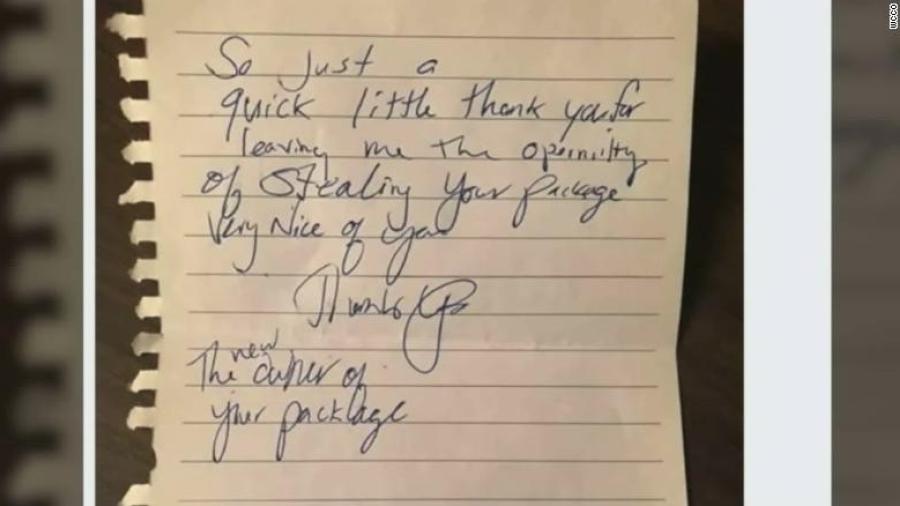 So Just a
quick little thank you for
leaving me the
of stealing your package
Very Nice of you
Thanks
The new owner of
your package
WCCO